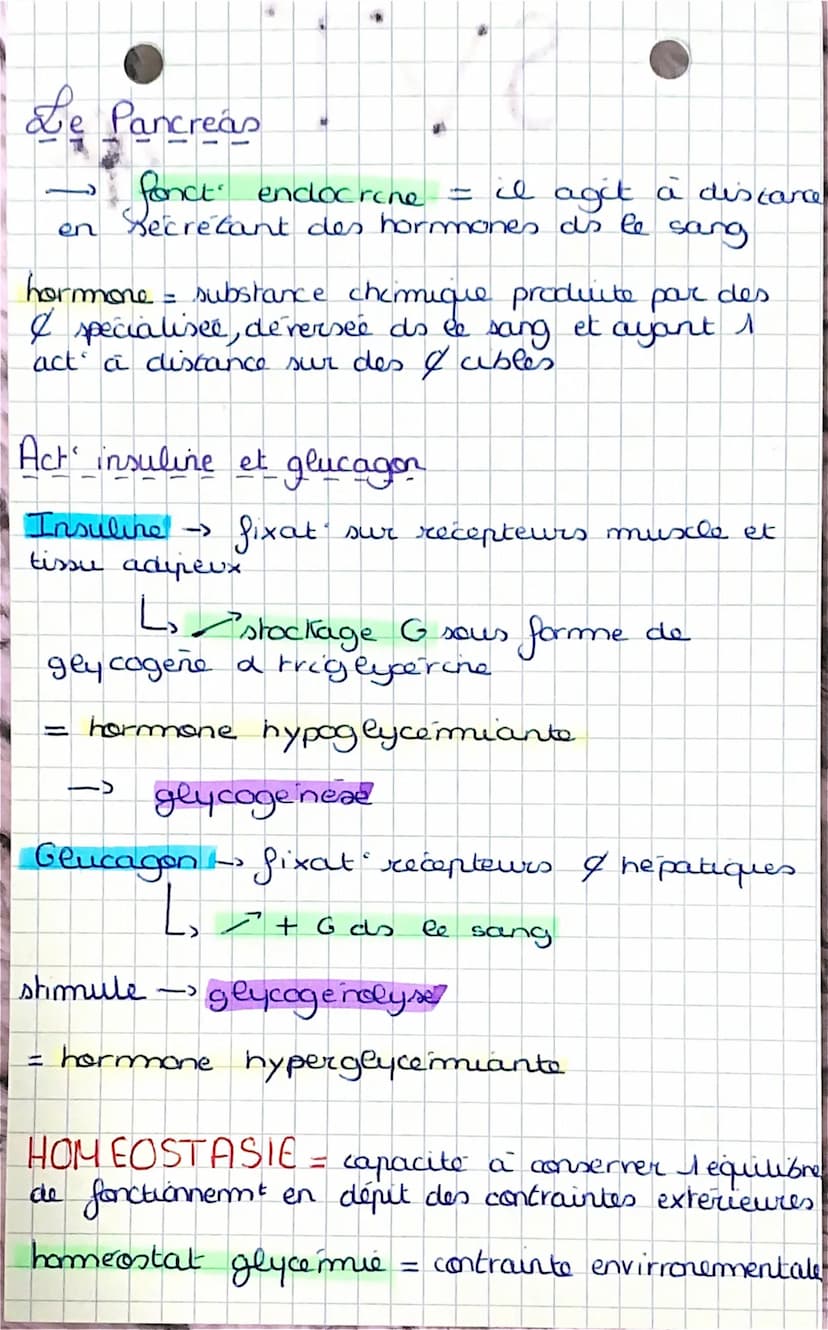 Le Pancréas
→ fonct° endocrine = il agit à distance
en secrétant des hormones ds le sang
hormone = substance chimique produite par des
₵ spécialisée, déversée ds le sang et ayant 1
act° à distance sur des ₵ cibles
Act° insuline et glucagon
Insuline → fixat° sur récepteurs muscle et
tissu adipeux
↳ ↗ stockage G sous forme de
glycogène & triglycérine
= hormone hypoglycémiante
→ glycogenèse
Glucagon → fixat° récepteurs ₵ hépatiques
↳ ↗ + G ds le sang
stimule → glycogénolyse
= hormone hyperglycémiante
HOMEOSTASIE = capacité à conserver l'équilibre
de fonctionnemt en dépit des contraintes extérieures
homéostat glycémie = contrainte envirronementale